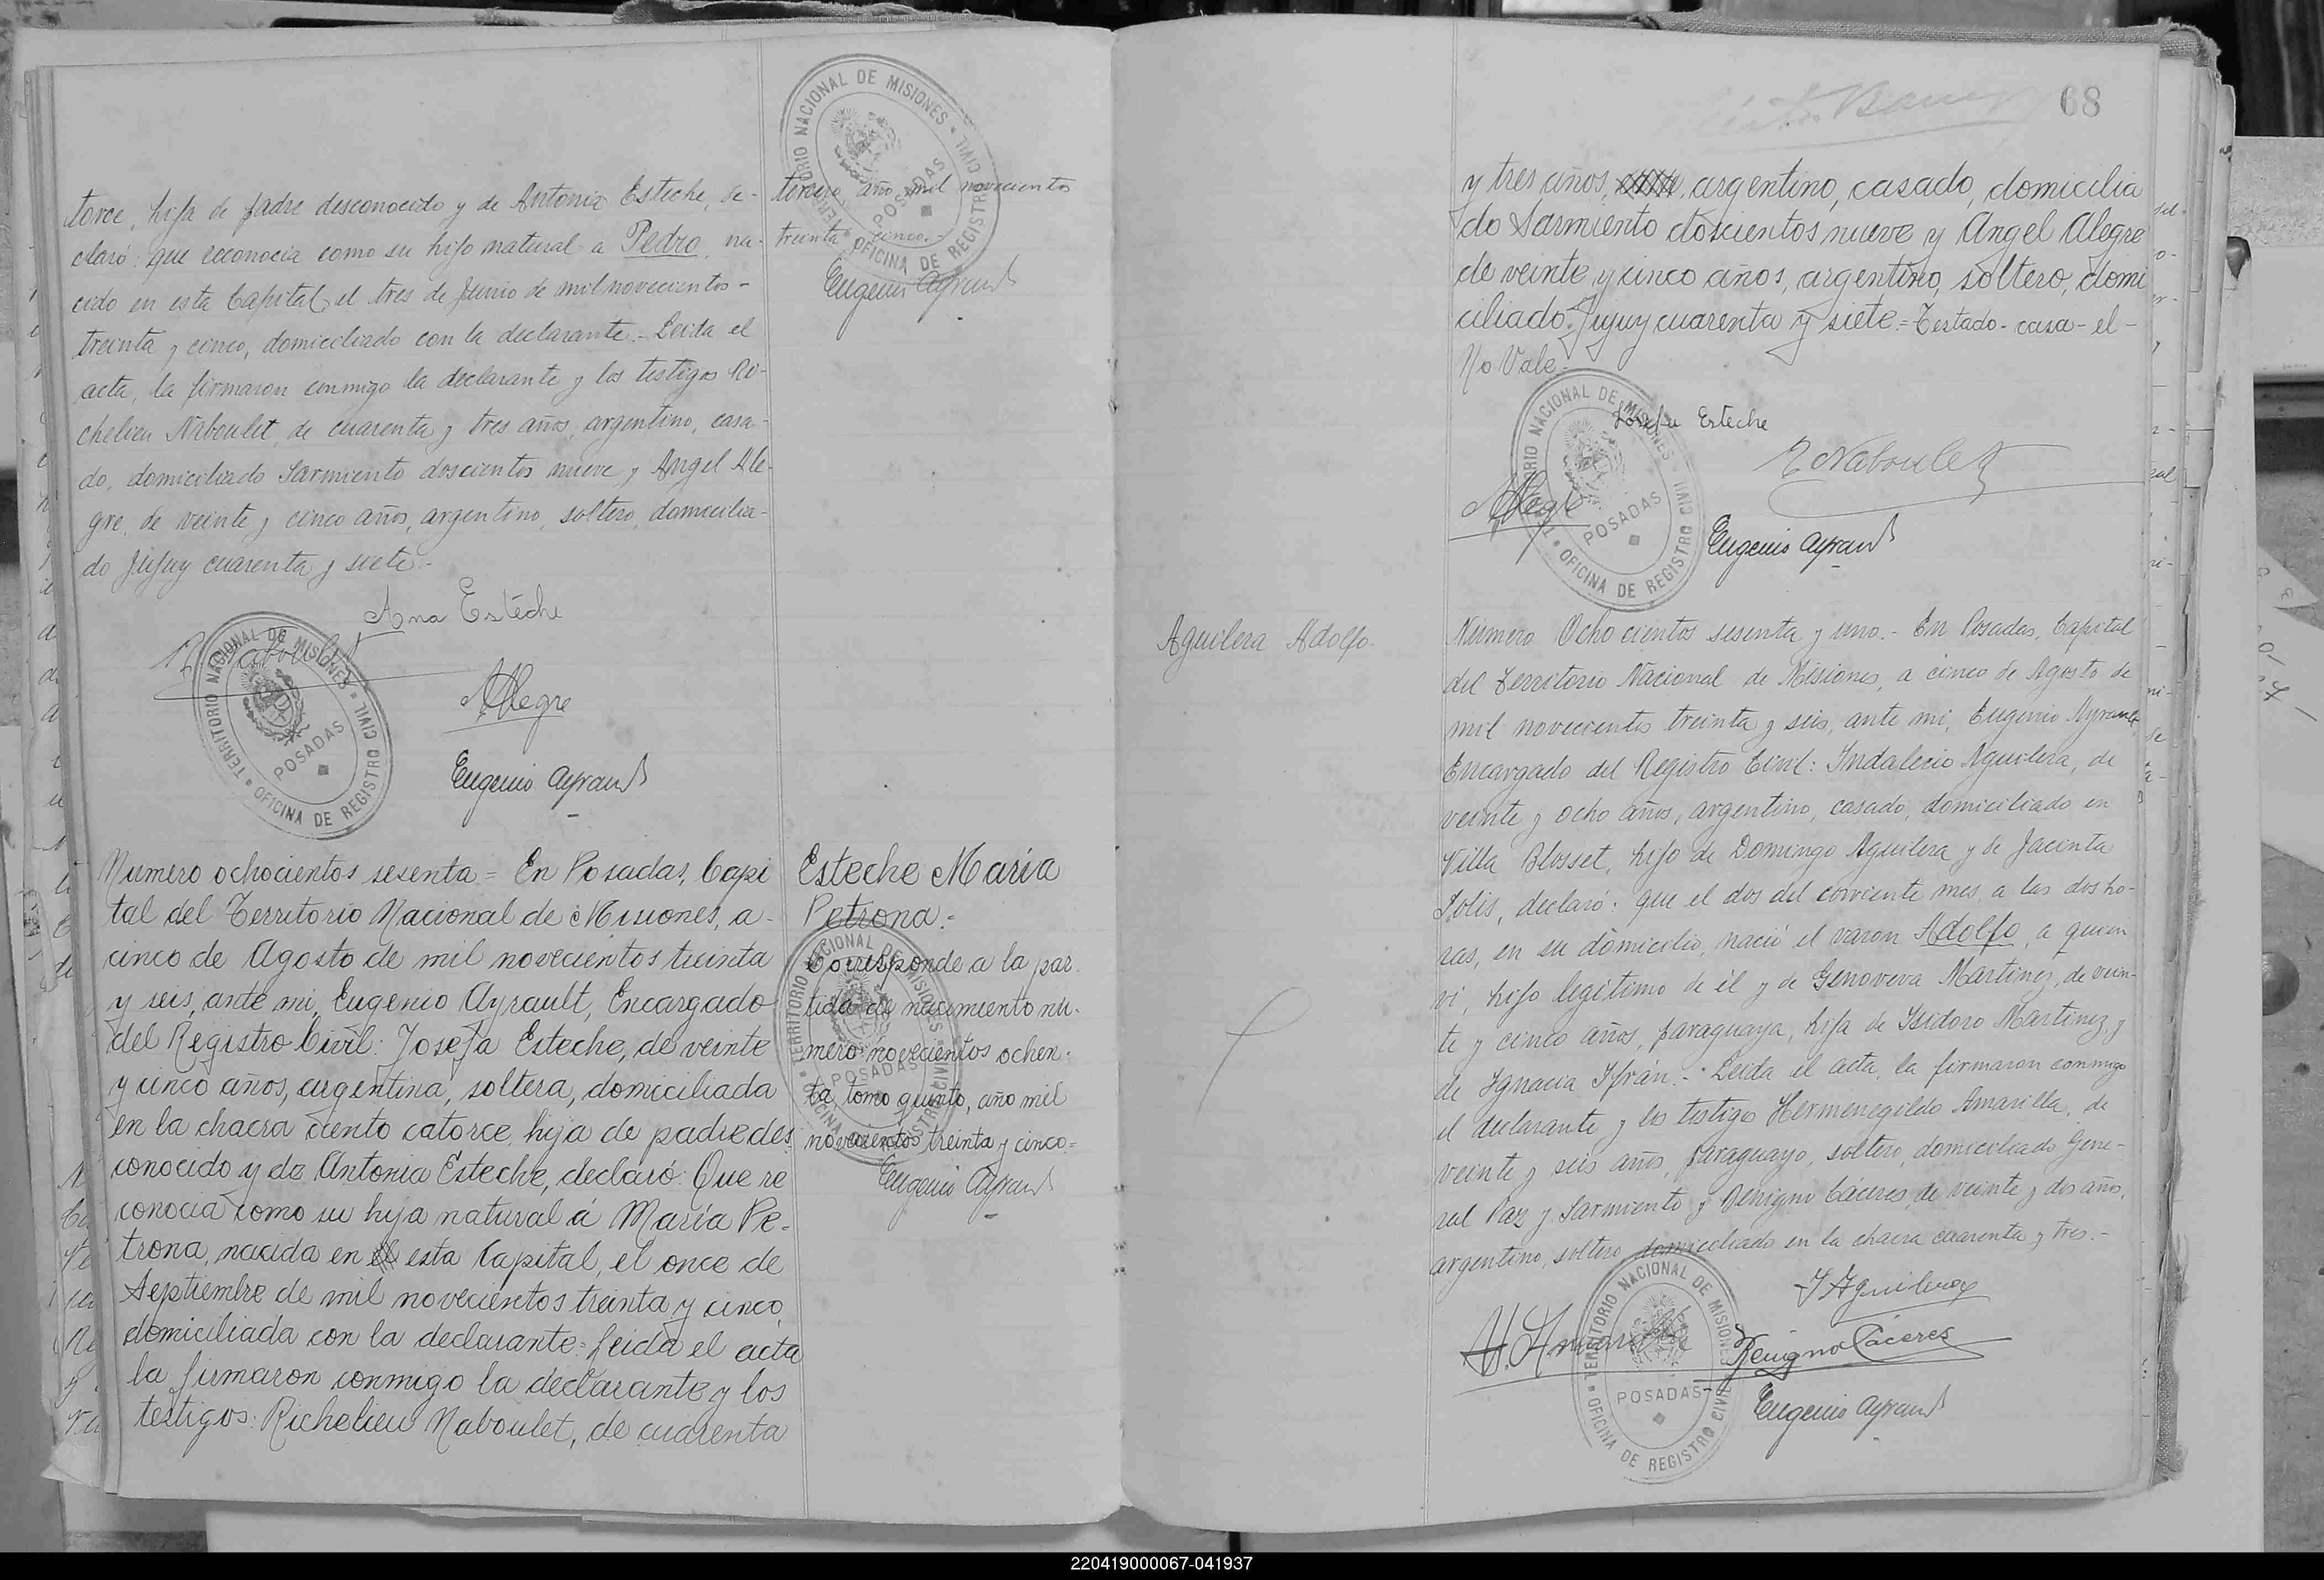 torce, hija de padre desconocido y de Antonia Esteche, de-
claró: que reconocia como su hijo natural a Pedro, na-
cido en esta Capital, el tres de Junio de mil novecientos-
treinta y cinco, domiciliado con la declarante.- Leida el
acta, la firmaron conmigo la declarante y los testigos Ri-
chelieu Naboulet, de cuarenta y tres años, argentino, casa-
do, domiciliado Sarmiento doscientos nueve y Angel Ale-
gre, de veinte y cinco años, argentino, soltero, domicilia-
do Jujuy cuarenta y siete.-
tercero, año mil novecientos
treinta y cinco.-
Eugenio Ayrault
Ana Esteche
R Naboulet
AAlegre
Eugenio Ayrault
TERRITORIO NACIONAL DE MISIONES
OFICINA DE REGISTRO CIVIL
POSADAS
Numero ochocientos sesenta = En Posadas, Capi
tal del Territorio Nacional de Misiones, a-
cinco de Agosto de mil novecientos treinta
y seis, ante mi, Eugenio Ayrault, Encargado
del Registro Civil: Josefa Esteche, de veinte
y cinco años, argentina, soltera, domiciliada
en la chacra ciento catorce, hija de padre des
conocido y de Antonia Esteche, declaró: Que re
conocia como su hija natural á María Pe-
trona, nacida en el esta Capital, el once de
Septiembre de mil novecientos treinta y cinco,
domiciliada con la declarante = Leida el acta
la firmaron conmigo la declarante y los
testigos: Richelieu Naboulet, de cuarenta
Esteche María
Petrona.=
Corresponde a la par-
tida de nacimiento nu-
mero novecientos ochen-
ta, tomo quinto, año mil
novecientos treinta y cinco=
Eugenio Ayrault
68
y tres años, argentino, casado, domicilia
do Sarmiento doscientos nueve y Angel Alegre
de veinte y cinco años, argentino, soltero, domi
ciliado Jujuy cuarenta y siete.= Testado - casa - el -
No Vale.-
Josefa Esteche
R Naboulet
AAlegre
Eugenio Ayrault
TERRITORIO NACIONAL DE MISIONES
OFICINA DE REGISTRO CIVIL
POSADAS
Aguilera Adolfo.
Número Ochocientos sesenta y uno.- En Posadas, Capital
del Territorio Nacional de Misiones, a cinco de Agosto de
mil novecientos treinta y seis, ante mi, Eugenio Ayrault,
Encargado del Registro Civil: Indalecio Aguilera, de
veinte y ocho años, argentino, casado, domiciliado en
Villa Blosset, hijo de Domingo Aguilera y de Jacinta
Solis, declaró: que el dos del corriente mes, a las dos ho-
ras, en su domicilio, nació el varon Adolfo, a quien
vi, hijo legitimo de él y de Genoveva Martinez, de vein-
te y cinco años, paraguaya, hija de Isidoro Martinez y
de Ignacia Ifrán.- Leida el acta, la firmaron conmigo
el declarante y los testigos Hermenegildo Amarilla, de
veinte y seis años, paraguayo, soltero, domiciliado Gene-
ral Paz y Sarmiento y Benigno Cáceres, de veinte y dos años,
argentino, soltero, domiciliado en la chacra cuarenta y tres.-
I Aguilera
H. Amarilla
Benigno Cáceres
Eugenio Ayrault
TERRITORIO NACIONAL DE MISIONES
OFICINA DE REGISTRO CIVIL
POSADAS
220419000067-041937